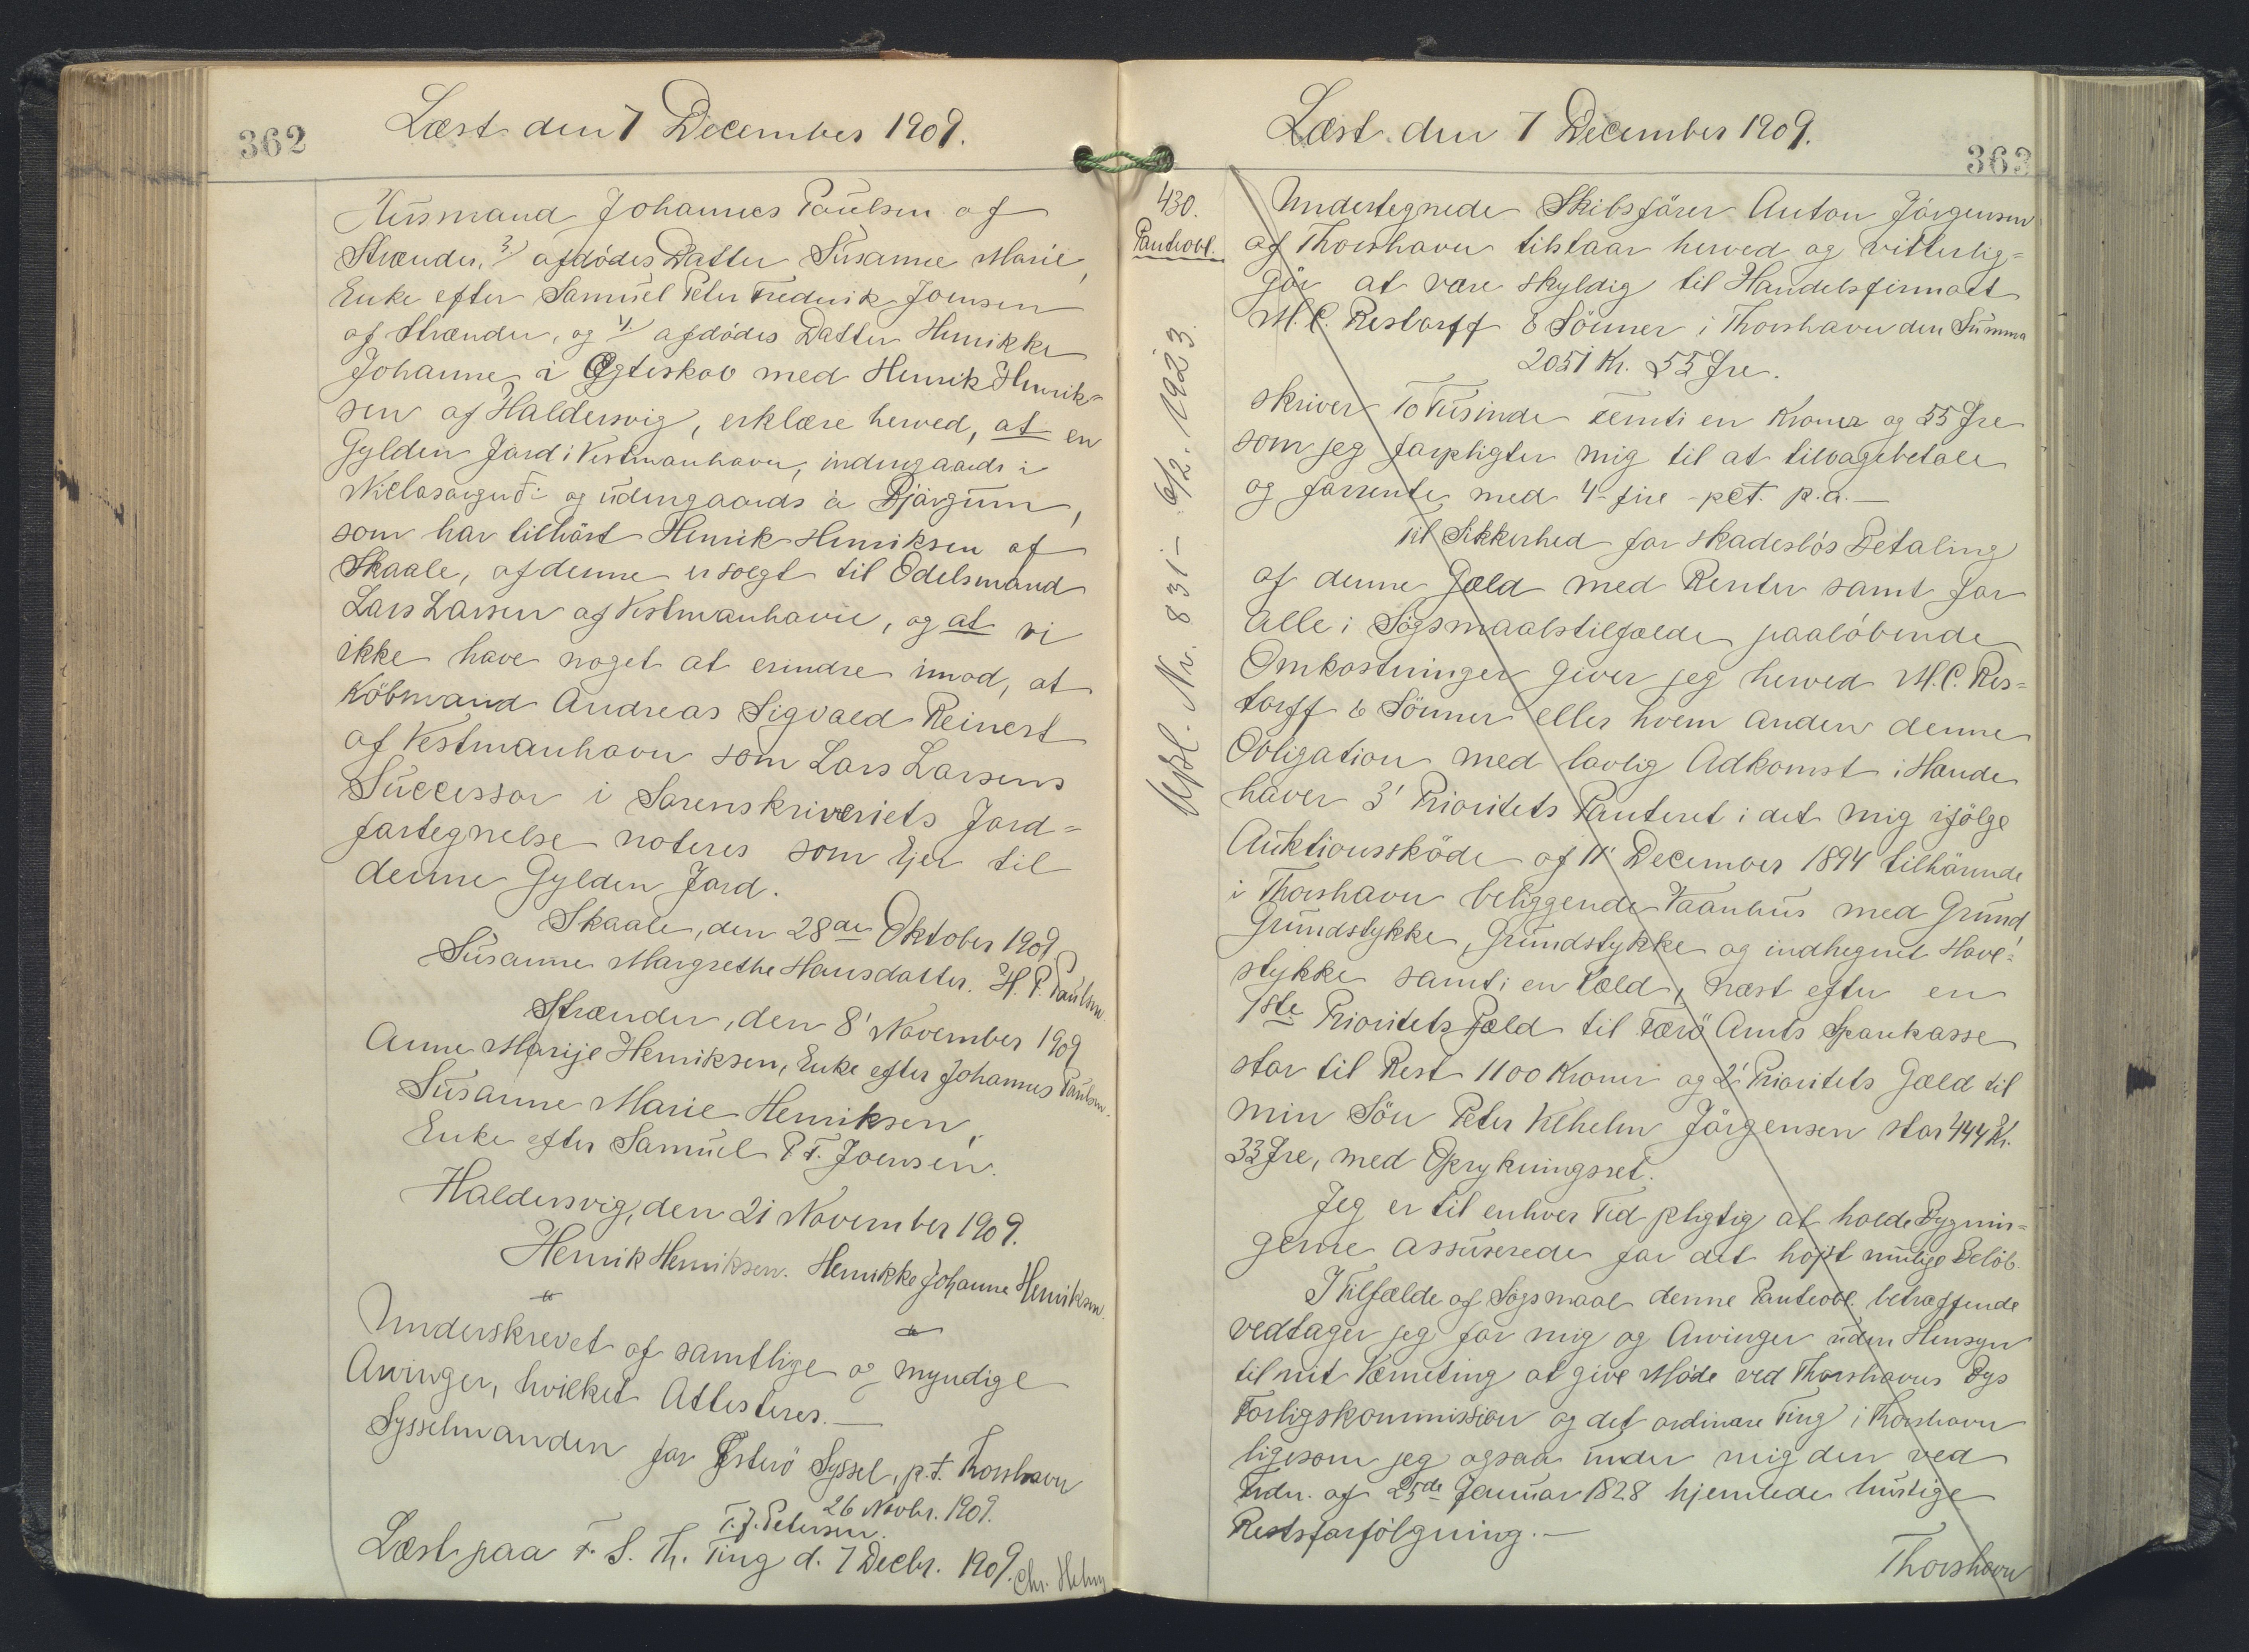 362
Læst den 7 December 1909.
Husmand Johannes Poulsen af
Strænder, 3/ afdödes Datter Susanne Marie,
Enke efter Samuel Peter Frederik Joensen
af Strænder, og 4/ afdödes Datter Henrikke
Johanne i Ægteskab med Henrik Henrik-
sen af Haldersvig, erklære herved, at en
Gylden Jord i Vestmanhavn, indengaards i
Niclasargerði og udengaards á Bjórgum,
som har tilhört Henrik Henriksen af
Skaale, af denne er solgt til Odelsmand
Lars Larsen af Vestmanhavn, og at vi
ikke have noget at erindre imod, at
Köbmand Andreas Sigvald Reinert
af Vestmanhavn som Lars Larsens
Successor i Sorenskriveriets Jord-
fortegnelse noteres som Ejer til
denne Gylden Jord.
Skaale, den 28de Oktober 1909.
Susanne Margrethe Hansdatter. H. P. Paulsen
Strænder, den 8' November 1909
Anne Marije Henriksen, Enke efter Johannes Paulsen.
Susanne Marie Henriksen,
Enke efter Samuel P. F. Joensen.
Haldersvig, den 21 November 1909.
Henrik Henriksen. Henrikke Johanne Henriksen.
Underskrevet af samtlige og myndige
Arvinger, hvilket Attesteres.—
Sysselmanden for Österö Syssel, p.t. Thorshavn
26 Novbr. 1909.
T. J. Petersen.
Læst paa F. S. Th. Ting d. 7 Decbr. 1909. Chr. Helms
Læst den 7 December 1909.
363
430.
Panteobl.
Udsl. Nr. 831 - 6/2. 1923.
Undertegnede Skibsförer Anton Jörgensen
af Thorshavn tilstaar herved og vitterlig-
gör at være skyldig til Handelsfirmaet
M. C. Restorff & Sönner i Thorshavn den Summa
2051 Kr. 55 Øre.
skriver To Tusinde Femti en Kroner og 55 Øre
som jeg forpligter mig til at tilbagebetale
og forrente med 4 - fire - pct. p.a.—
Til Sikkerhed for skadeslös Betaling
af denne Gæld med Renter samt for
alle i Sögsmaalstilfælde paalöbende
Omkostninger giver jeg herved M. C. Res-
torff & Sönner eller hvem anden denne
Obligation med lovlig Adkomst i Hænde
haver 3' Prioritets Panteret i det mig ifölge
Auktionsskøde af 11' December 1894 tilhörende
i Thorshavn beliggende Vaanhus med Grund
Grundstykke, Grundstykke og indhegnet Have-
stykke samt i en Fæld, næst efter en
1ste Prioritets Gæld til Færö Amts Sparekasse
stor til Rest 1100 Kroner og 2' Prioritets Gæld til
min Sön Peter Vilhelm Jörgensen stor 444 Kr.
33 Øre, med Oprykningsret.
Jeg er til enhver Tid pligtig at holde Bygnin-
gerne assurerede for det höjst mulige Belöb.
I Tilfælde af Sögsmaal denne Panteobl. betræffende
vedtager jeg for mig og Arvinger uden Hensyn
til mit Værneting at give Möde ved Thorshavns Bys
Forligskommission og det ordinære Ting i Thorshavn
ligesom jeg ogsaa under mig den ved
Frdn. af 25de Januar 1828 hjemlede hurtige
Retsforfölgning.—
Thorshavn